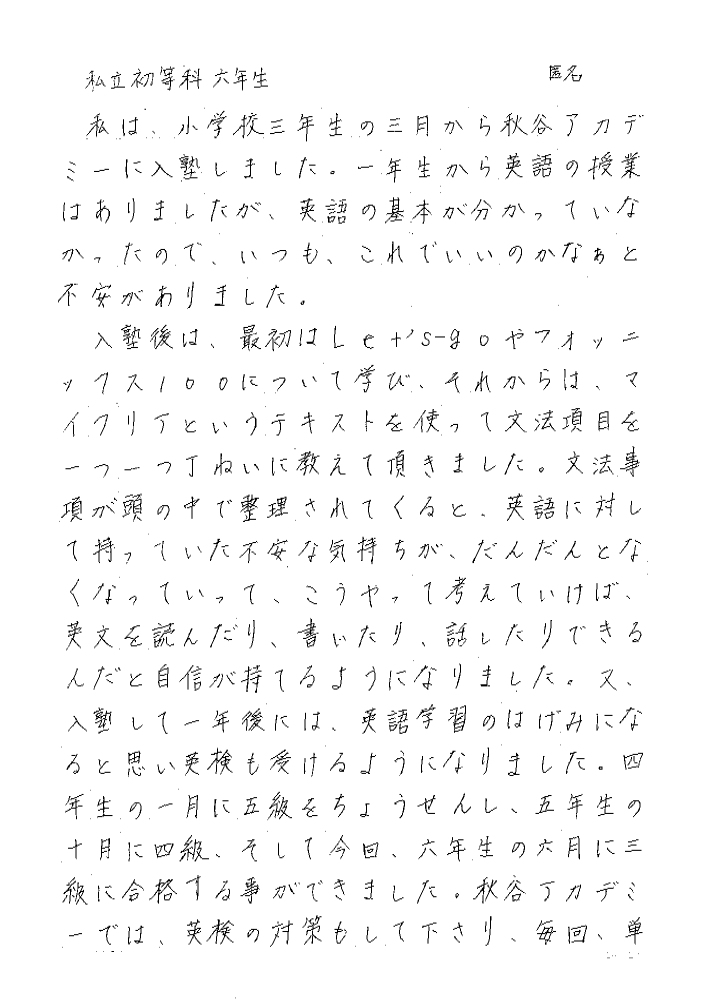 私立初等科 六年生 匿名
私は、小学校三年生の三月から秋谷アカデ
ミーに入塾しました。一年生から英語の授業
はありましたが、英語の基本が分かっていな
かったので、いつも、これでいいのかなぁと
不安がありました。
入塾後は、最初はLet's-goやフォッニ
ックス100について学び、それからは、マ
イクリアというテキストを使って文法項目を
一つ一つ丁ねいに教えて頂きました。文法事
項が頭の中で整理されてくると、英語に対し
て持っていた不安な気持ちが、だんだんとな
くなっていって、こうやって考えていけば、
英文を読んだり、書いたり、話したりできる
んだと自信が持てるようになりました。又、
入塾して一年後には、英語学習のはげみにな
ると思い英検も受けるようになりました。四
年生の一月に五級をちょうせんし、五年生の
十月に四級、そして今回、六年生の六月に三
級に合格する事ができました。秋谷アカデミ
ーでは、英検の対策もして下さり、毎回、単